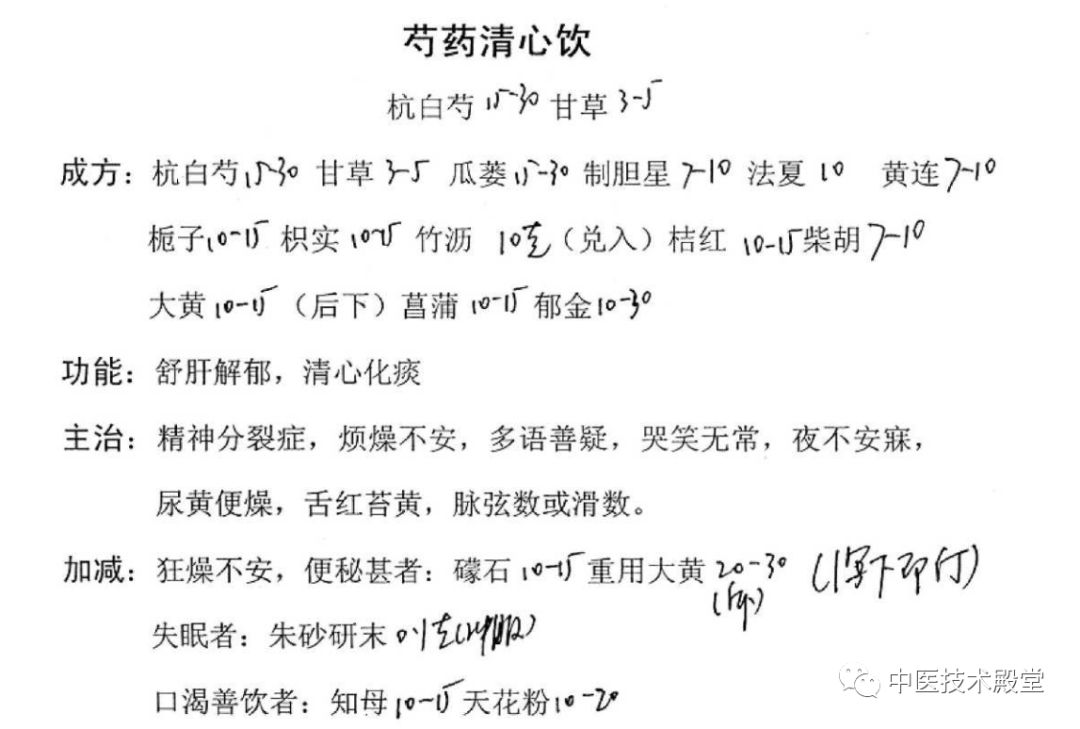 芍药清心饮
杭白芍 15-30 甘草 3-5
成方：杭白芍 15-30 甘草 3-5 瓜蒌 15-30 制胆星 7-10 法夏 10 黄连 7-10
栀子 10-15 枳实 10-15 竹沥 10克（兑入）桔红 10-15 柴胡 7-10
大黄 10-15（后下）菖蒲 10-15 郁金 10-30
功能：舒肝解郁，清心化痰
主治：精神分裂症，烦燥不安，多语善疑，哭笑无常，夜不安寐，
尿黄便燥，舌红苔黄，脉弦数或滑数。
加减：狂燥不安，便秘甚者：礞石 10-15 重用大黄 20-30
失眠者：朱砂研末
口渴善饮者：知母 10-15 天花粉 10-20
中医技术殿堂